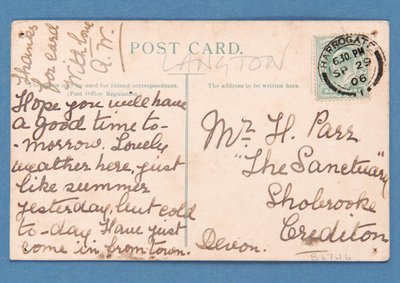 Thanks
for card
With love
A.W.
POST CARD.
LANGTON
(To be used for Inland correspondence.
(Post Office Regulation.)
The address to be written here.
HARROGATE
6.30 PM
SP 29
06
Hope you will have
a good time to-
-morrow. Lovely
weather here, just
like summer
yesterday, but cold
to-day. Have just
come in from town.
Mr H. Parr
"The Sanctuary"
Shobrooke
Crediton
Devon.